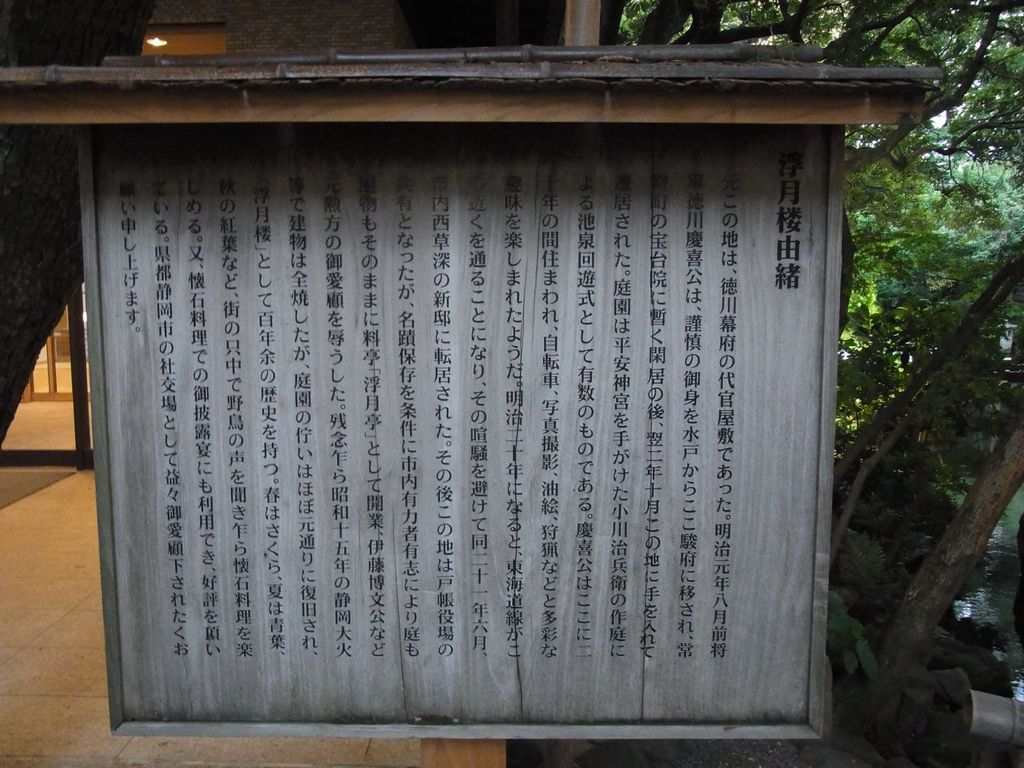 浮月楼由緒
元この地は、徳川幕府の代官屋敷であった。明治元年八月前将
軍徳川慶喜公は、謹慎の御身を水戸からここ駿府に移され、常
町の宝台院に暫く閑居の後、翌二年十月この地に手を入れて
居された。庭園は平安神宮を手がけた小川治兵衛の作庭に
よる池泉回遊式として有数のものである。慶喜公はここに二
十年の間住まわれ、自転車、写真撮影、油絵、狩猟などと多彩な
趣味を楽しまれたようだ。明治二十年になると、東海道線がこ
の近くを通ることになり、その喧騒を避けて同二十一年六月、
市内西草深の新邸に転居された。その後この地は戸帳役場の
共有となったが、名蹟保存を条件に市内有力者有志により庭も
建物もそのままに料亭「浮月亭」として開業、伊藤博文公など
元勲方の御愛顧を辱うした。残念乍ら昭和十五年の静岡大火
等で建物は全焼したが、庭園の佇いはほぼ元通りに復旧され、
「浮月楼」として百年余の歴史を持つ。春はさくら、夏は青葉、
秋の紅葉など、街の只中で野鳥の声を聞き乍ら懐石料理を楽
しめる。又、懐石料理での御披露宴にも利用でき、好評を頂い
ている。県都静岡市の社交場として益々御愛顧下されたく、お
願い申し上げます。